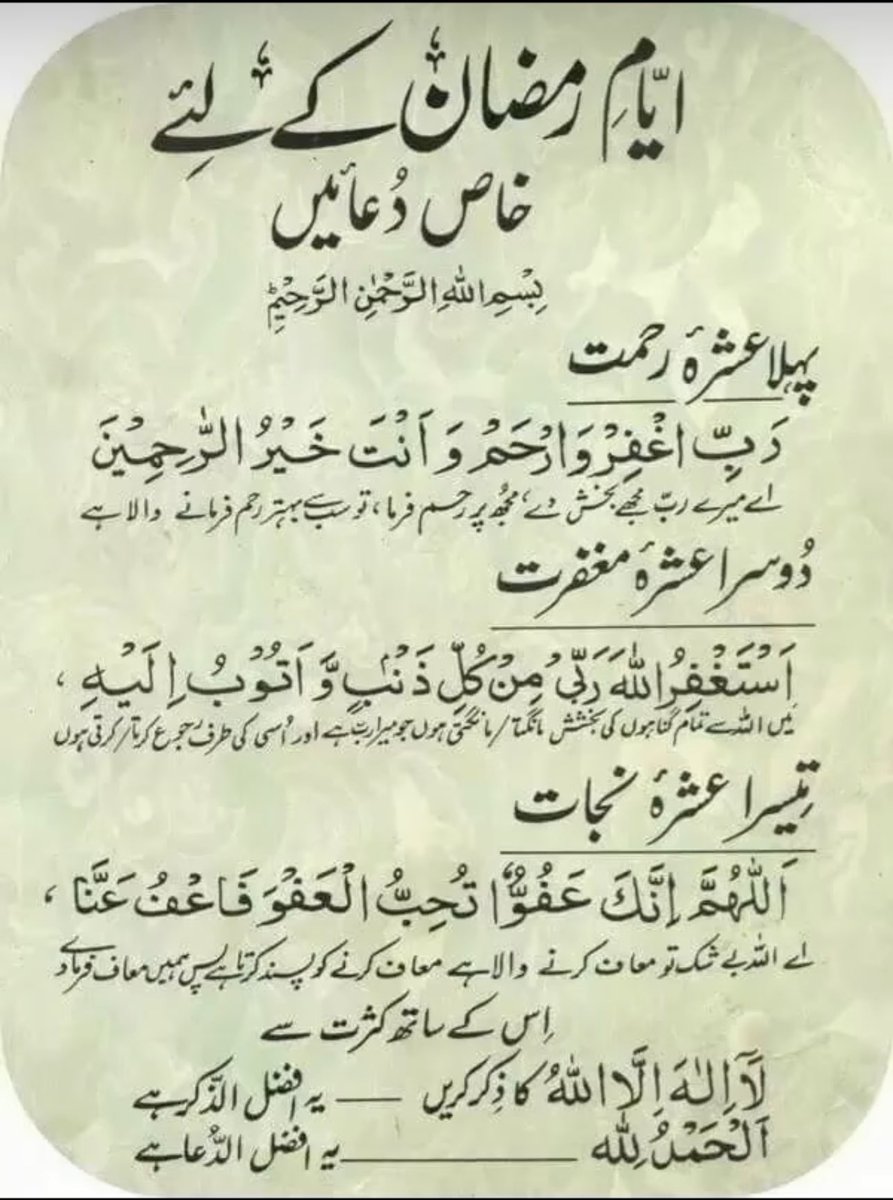 ایّامِ رمضان کے لئے
خاص دُعائیں
بِسْمِ اللهِ الرَّحْمٰنِ الرَّحِيْمِ
پہلا عشرۂ رحمت
رَبِّ اغْفِرْ وَارْحَمْ وَ اَنْتَ خَيْرُ الرّٰحِمِيْنَ
اے میرے ربّ مجھے بخش دے، مجھ پر رحم فرما، تو سب سے بہتر رحم فرمانے والا ہے
دُوسرا عشرۂ مغفرت
اَسْتَغْفِرُ اللهَ رَبِّیْ مِنْ كُلِّ ذَنْۢبٍ وَّ اَتُوْبُ اِلَيْهِ ،
میں اللہ سے تمام گناہوں کی بخشش مانگتا/مانگتی ہوں جو میرا ربّ ہے اور اُسی کی طرف رجوع کرتا/کرتی ہوں
تیسرا عشرۂ نجات
اَللّٰهُمَّ اِنَّكَ عَفُوٌّ تُحِبُّ الْعَفْوَ فَاعْفُ عَنَّا ،
اے اللہ بے شک تو معاف کرنے والا ہے معاف کرنے کو پسند کرتا ہے پس ہمیں معاف فرما دے
اِس کے ساتھ کثرت سے
لَآ اِلٰهَ اِلَّا اللهُ کا ذِکر کریں — یہ افضل الذّکر ہے
اَلْحَمْدُ لِلّٰه — یہ افضل الدُّعا ہے